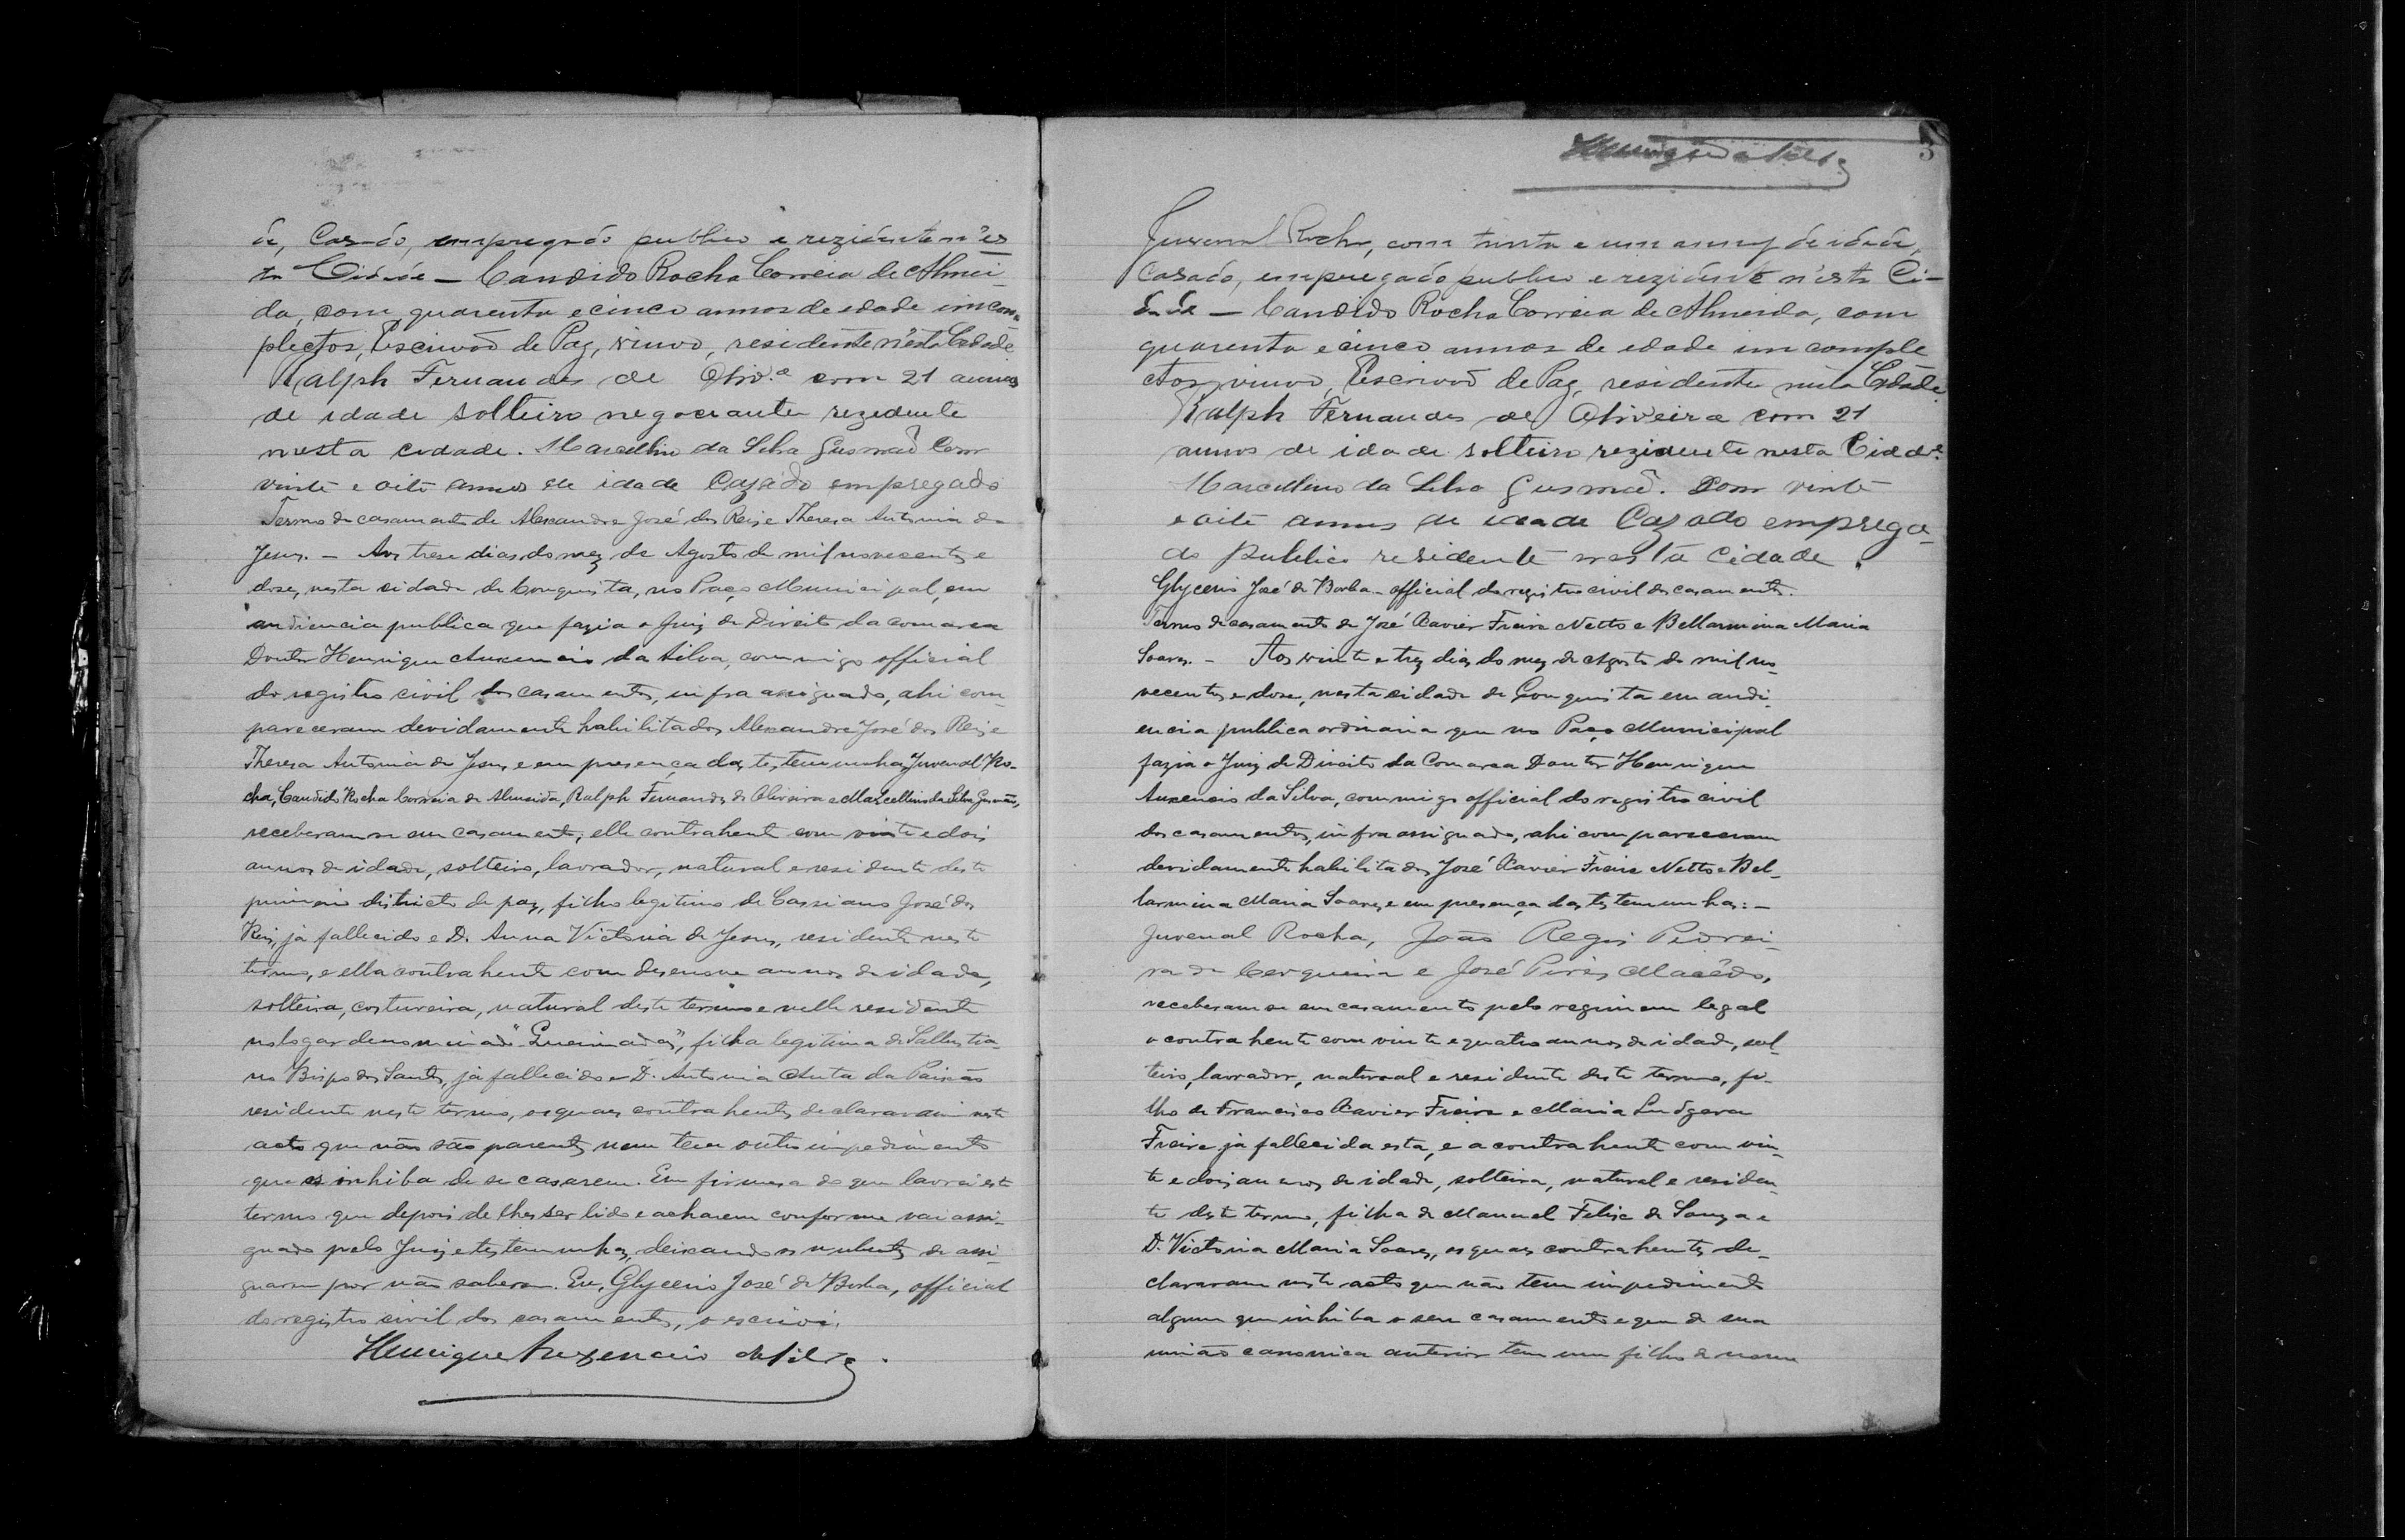 de, Casado, empregado publico e rezidente n'es
ta Cidade — Candido Rocha Correia de Almei-
da, com quarenta e cinco annos de edade imcom-
plectos, Escrivaõ de Paz, viuvo, residente n'esta Cidade
Ralph Fernandes de Oliv.ª com 21 annos
de idade solteiro negociante rezedente
nesta cidade. Marcellino da Silva Gusmaõ Com
vinte e oito annos de idade Cazado empregado
Termo de casamento de Alexandre José dos Reis e Theresa Antonia de
Jesus. — Aos trese dias do mez de Agosto de mil novecentos e
dose, nesta cidade de Conquista, no Paço Municipal, em
audiencia publica que fazia o Juiz de Direito da comarca
Doutor Henrique Auxencio da Silva, commigo official
do registro civil dos casamentos, infra assignado, ahi com-
pareceram devidamente habilitados Alexandre José dos Reis e
Theresa Antonia de Jesus e em presença das testemunhas, Juvenal Ro-
cha, Candido Rocha Correia de Almeida, Ralph Fernandes de Oliveira e Marcellino da Silva Gusmão,
receberam-se em casamento, elle contrahente com vinte e dois
annos de idade, solteiro, lavrador, natural e residente deste
primeiro districto de paz, filho legitimo de Cassiano José dos
Reis, já fallecido e D. Anna Victoria de Jesus, residente neste
termo, e ella contrahente com desenove annos de idade,
solteira, costureira, natural deste termo e nelle residente
no logar denominado "Queimadas", filha legitima de Sallustia-
no Bispo dos Santos, já fallecido e D. Antonia Auta da Paixão
residente neste termo, os quaes contrahentes declararam neste
acto que não são parentes nem tem outro impedimento
que os inhiba de se casarem. Em firmesa do que lavrei este
termo que depois de lhes ser lido e acharem conforme vai assi-
gnado pelo Juiz e testemunhas, deixando os nubentes de assi-
gnarem por não saberem. Eu, Glycerio José de Borba, official
do registro civil dos casamentos, o escrivi.
Henrique Auxencio da Silva.
3
Juvenal Rocha, com trinta e um annos de idade,
Casado, empregado publico e rezidente n'esta Ci-
dade — Candido Rocha Correia de Almeida, com
quarenta e cinco annos de edade imcomple
ctos, viuvo, Escrivaõ de Paz, residente nesta Cidade
Ralph Fernandes de Oliveira com 21
annos de idade solteiro rezidente nesta Cidde.
Marcellino da Silva Gusmaõ. Com vinte
e oito annos de idade Cazado emprega-
do publico residente nesta Cidade.
Glycerio José de Borba - official do registro civil dos casamentos.
Termo de casamento de José Xavier Freire Netto e Bellarmina Maria
Soares. — Aos vinte e trez dias do mez de Agosto de mil no-
vecentos e dose, nesta cidade de Conquista em audi-
encia publica ordinaria que no Paço Municipal
fazia o Juiz de Direito da Comarca Doutor Henrique
Auxencio da Silva, commigo official do registro civil
dos casamentos, infra assignado, ahi compareceram
devidamente habilitados José Xavier Freire Netto e Bel-
larmina Maria Soares e em presença das testemunhas: —
Juvenal Rocha, João Regis Pedrei-
ra de Cerqueira e José Pires Macêdo,
receberam-se em casamento pelo regimem legal
o contrahente com vinte e quatro annos de idade, sol-
teiro, lavrador, natural e residente deste termo, fi-
lho de Francisco Xavier Freire e Maria Ludgera
Freire já fallecida esta, e a contrahente com vin-
te e dois annos de idade, solteira, natural e residen-
te deste termo, filha de Manuel Felix de Souza e
D. Victoria Maria Soares, os quaes contrahentes de-
clararam neste acto que não tem impedimento
algum que inhiba o seu casamento e que de sua
união canonica anterior tem um filho de nome